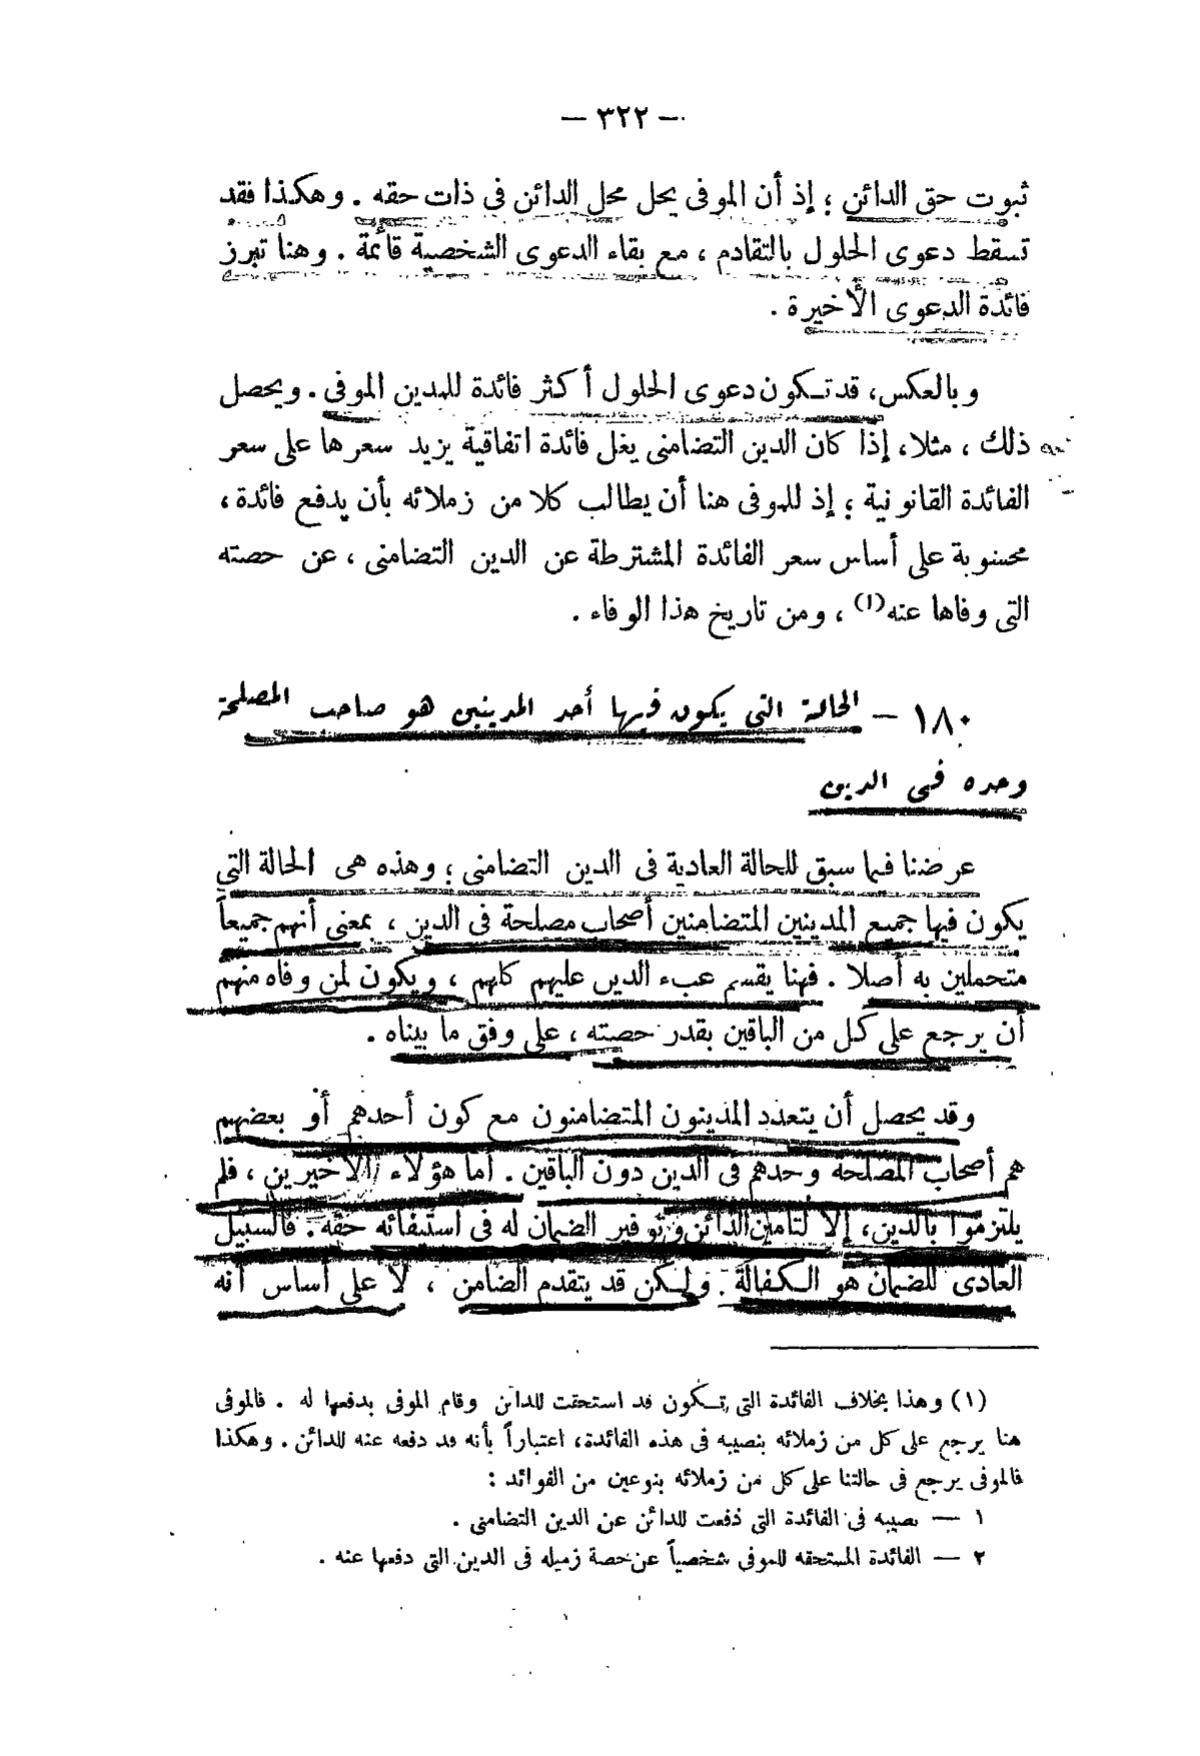 — ٣٢٢ —
ثبوت حق الدائن ؛ إذ أن الموفى يحل محل الدائن فى ذات حقه . وهكذا فقد
تسقط دعوى الحلول بالتقادم ، مع بقاء الدعوى الشخصية قائمة . وهنا تبرز
فائدة الدعوى الأخيرة .
وبالعكس، قد تكون دعوى الحلول أكثر فائدة للمدين الموفى . ويحصل
ذلك ، مثلا، إذا كان الدين التضامنى يغل فائدة اتفاقية يزيد سعرها على سعر
الفائدة القانونية ؛ إذ للموفى هنا أن يطالب كلا من زملائه بأن يدفع فائدة ،
محسوبة على أساس سعر الفائدة المشترطة عن الدين التضامنى ، عن حصته
التى وفاها عنه(١) ، ومن تاريخ هذا الوفاء .
١٨٠ – الحالة التى يكون فيها أحد المدينين هو صاحب المصلحة
وحده فى الدين
عرضنا فيما سبق للحالة العادية فى الدين التضامنى ؛ وهذه هى الحالة التى
يكون فيها جميع المدينين المتضامنين أصحاب مصلحة فى الدين ، بمعنى أنهم جميعاً
متحملين به أصلا . فهنا يقسم عبء الدين عليهم كلهم ، ويكون لمن وفاه منهم
أن يرجع على كل من الباقين بقدر حصته ، على وفق ما بيناه .
وقد يحصل أن يتعدد المدينون المتضامنون مع كون أحدهم أو بعضهم
هم أصحاب المصلحة وحدهم فى الدين دون الباقين . أما هؤلاء الأخيرين ، فلم
يلتزموا بالدين، إلا لتأمين الدائن وتوفير الضمان له فى استيفائه حقه . فالسبيل
العادى للضمان هو الكفالة . ولكن قد يتقدم الضامن ، لا على أساس أنه
(١) وهذا بخلاف الفائدة التى تكون قد استحقت للدائن وقام الموفى بدفعها له . فالموفى
هنا يرجع على كل من زملائه بنصيبه فى هذه الفائدة، اعتباراً بأنه قد دفعه عنه للدائن . وهكذا
فالموفى يرجع فى حالتنا على كل من زملائه بنوعين من الفوائد :
١ — نصيبه فى الفائدة التى دفعت للدائن عن الدين التضامنى .
٢ — الفائدة المستحقه للموفى شخصياً عن حصة زميله فى الدين التى دفعها عنه .